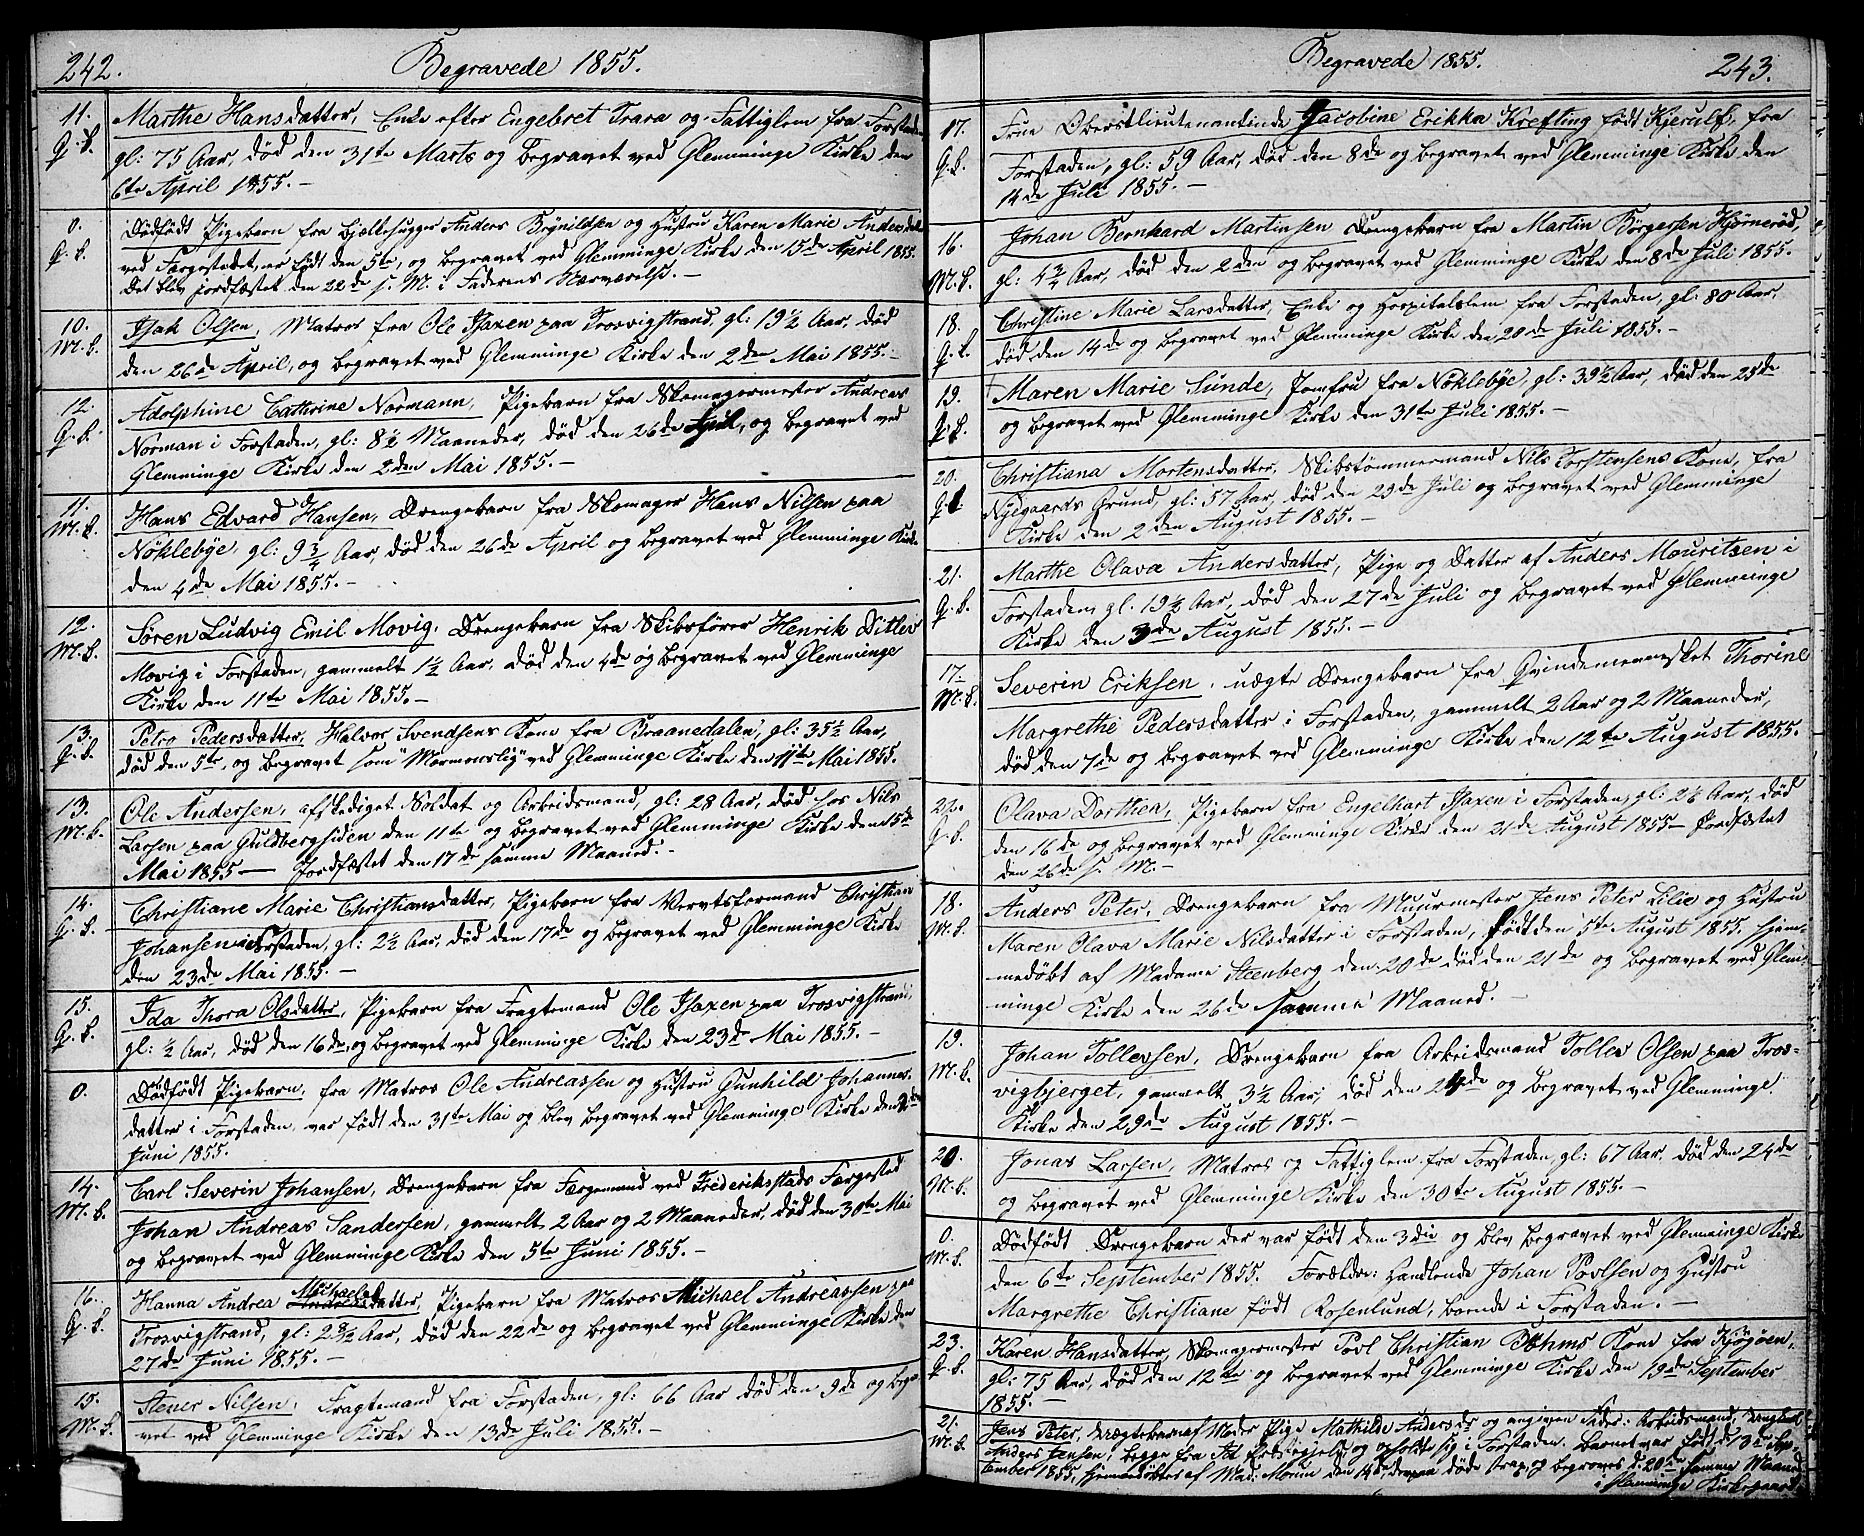 242.
Begravede 1855.
11.
Q. K.
Marthe Hansdatter, Enke efter Engebret Trara og Fattiglem fra Forstaden
gl: 75 Aar, død den 31te Marts og begravet ved Glemminge Kirke den
6te April 1855.—
0.
Q. K.
Dødfødt Pigebarn fra Anders Brynildsen og Hustru Karen Marie Andersdatter
ved Færgestedet, er født den 5te, og begravet ved Glemminge Kirke den 15de April 1855.
Det blev jordfæstet den 22de s. M. i Faderens Nærværelse.—
10.
M. K.
Isak Olsen, Matros fra Ole Isaxen paa Trosvigstrand, gl: 19½ Aar, død
den 26de April, og begravet ved Glemminge Kirke den 2den Mai 1855.—
12.
Q. K.
Adolphine Cathrine Normann, Pigebarn fra Skomagermester Andreas
Norman i Forstaden, gl: 8½ Maaneder, død den 26de April, og begravet ved
Glemminge Kirke den 2den Mai 1855.—
11.
M. K.
Hans Edvard Hansen, Drengebarn fra Skomager Hans Nilsen paa
Nøklebye, gl: 9¾ Aar, død den 26de April og begravet ved Glemminge Kirke
den 4de Mai 1855.—
12.
M. K.
Søren Ludvig Emil Movig, Drengebarn fra Skibsfører Henrik Ditlev
Movig i Forstaden, gammelt 1½ Aar, død den 4de og begravet ved Glemminge
Kirke den 11te Mai 1855.—
13.
Q. K.
Petro Pedersdatter, Halvor Svendsens Kone fra Braanedalen, gl: 35½ Aar,
død den 5te, og begravet som "Mormonslig" ved Glemminge Kirke den 11te Mai 1855.
13.
M. K.
Ole Andersen, afskediget Soldat og Arbeidsmand, gl: 28 Aar, død hos Nils
Larsen paa Guldbergsiden den 11te og begravet ved Glemminge Kirke den 15de
Mai 1855— Jordfæstet den 17de samme Maaned.—
14.
Q. K.
Christiane Marie Christiansdatter, Pigebarn fra Vervtsformand Christian
Johansen i Forstaden, gl: 2½ Aar, død den 17de og begravet ved Glemminge Kirke
den 23de Mai 1855.—
15.
Q. K.
Ida Thora Olsdatter, Pigebarn fra Fragtemand Ole Isaxen paa Trosvigstrand,
gl: ½ Aar, død den 16de, og begravet ved Glemminge Kirke den 23de Mai 1855.—
0.
Dødfødt Pigebarn, fra Matros Ole Andreassen og Hustru Gunhild Johannes-
datter i Forstaden, var født den 31te Mai og blev begravet ved Glemminge Kirke den
Juni 1855.
14.
M. K.
Carl Severin Johansen, Drengebarn fra Færgemand ved Frederiksstads Færgested
Johan Andreas Sandersen, gammelt 2 Aar og 2 Maaneder, død den 30te Mai
og begravet ved Glemminge Kirke den 5te Juni 1855.—
16.
Q. K.
Hanna Andrea Michaelsdatter, Pigebarn fra Matros Michael Andreassen paa
Trosvigstrand, gl: Aar, død den 22de og begravet ved Glemminge Kirke den
27de Juni 1855.—
15.
M. K.
Stener Nilsen, Fragtemand fra Forstaden, gl: 66 Aar død den 9de og begra-
vet ved Glemminge Kirke den 13de Juli 1855.—
Begravede 1855.
243.
17.
Q. K.
Frue Oberstlieutenantinde Jacobine Erikka Krefting født Kjerulf, fra
Forstaden, gl: 59 Aar, død den 8de og begravet ved Glemminge Kirke den
14de Juli 1855.—
16.
M. K.
Johan Bernhard Martinsen Drengebarn fra Martin Børgesen Hjørnerød,
gl: Aar, død den 2den og begravet ved Glemminge Kirke den 8de Juli 1855.
18.
Q. K.
Christine Marie Larsdatter, Enke og Hospitalslem fra Forstaden, gl: 80 Aar,
død den 14de og begravet ved Glemminge Kirke den 20de Juli 1855.—
19.
Q. K.
Maren Marie Sunde, Jomfru fra Nøklebye, gl: 39½ Aar, død den 25de
og begravet ved Glemminge Kirke den 31te Juli 1855.—
20.
Q. K.
Christiana Mortensdatter, Skibstømmermand Nils Torstensens Kone, fra
Nygaards Grund, gl: 57 Aar, død den 29de Juli og begravet ved Glemminge
Kirke den 2den August 1855.—
21.
Q. K.
Marthe Olava Andersdatter, Pige og Datter af Anders Mouritsen i
Forstaden gl. 19½ Aar, død den 27de Juli og begravet ved Glemminge
Kirke den 3de August 1855.—
17.
M. K.
Severin Eriksen, uægte Drengebarn fra Qvindemennesket Thorine
Margrethe Pedersdatter i Forstaden, gammelt 2 Aar og 2 Maaneder,
død den 7de og begravet ved Glemminge Kirke den 12te August 1855.
22.
Q. K.
Olava Dorthea, Pigebarn fra Engelhart Isaxen i Forstaden, gl: Aar, død
den 16de og begravet ved Glemminge Kirke den 21de August 1855— Jordfæstet
den 26de s. M.—
18.
M. K.
Anders Peter, Drengebarn fra Muurmester Jens Peter Lilie og Hustru
Maren Olava Marie Nilsdatter i Forstaden, født den 5te August 1855. hjem-
medøbt af Madame Steenberg den 20de død den 21de og begravet ved Glem-
minge Kirke den 26de samme Maaned.—
19.
M. K.
Johan Tollefsen, Drengebarn fra Arbeidsmand Tollev Olsen paa Tros-
vigbjerget, gammelt 3½ Aar, død den 24de og begravet ved Glemminge
Kirke den 29de August 1855.—
20.
M. K.
Jonas Larsen, Matros og Fattiglem fra Forstaden, gl: 67 Aar, død den 24de
og begravet ved Glemminge Kirke den 30te August 1855.—
0.
M. K.
Dødfødt Drengebarn der var født den 3die og blev begravet ved Glemminge Kirke
den 6te September 1855. Forældre: Handlende Johan Povlsen og Hustru
Margrethe Christiane født Rosenlund, boende i Forstaden.—
23.
Q. K.
Karen Hansdatter, Skomagermester Povl Christian Bøhms Kone fra Kjøgøen,
gl: 75 Aar, død den 12te og begravet ved Glemminge Kirke den 19de September
1855.—
21.
M. K.
Jens Peter, Uægtebarn af Moder Pige Mathilde Andersdr og angiven Fader: Arbeidsmand,
Anders Jensen, begge fra og opholde sig i Forstaden. Barnet var født d. 13de Sep-
tember 1855, hjemmedøbtes af Mad: Morum den 14de, døde strax og begraves d. 20de samme Maaned
i Glemminge Kirkegaard.